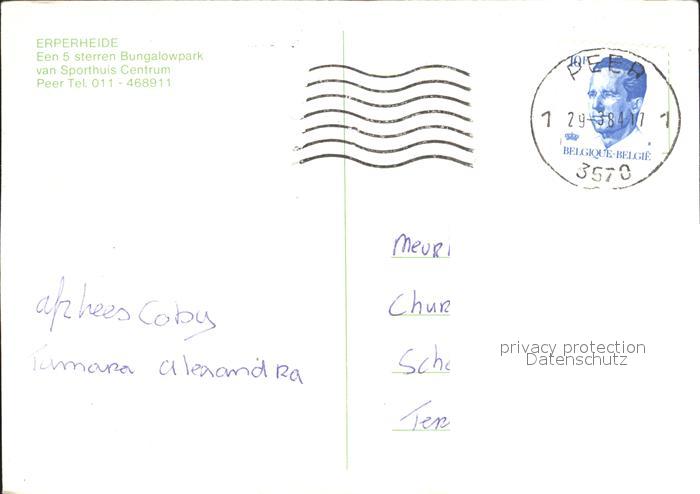 ERPERHEIDE
Een 5 sterren Bungalowpark
van Sporthuis Centrum
Peer Tel. 011 - 468911
10F
PEER
1 29-3-84 17 1
BELGIQUE-BELGIË
3570
Meur
Chur
Coby
Sche
Tamara Alexandra
Ter
privacy protection
Datenschutz